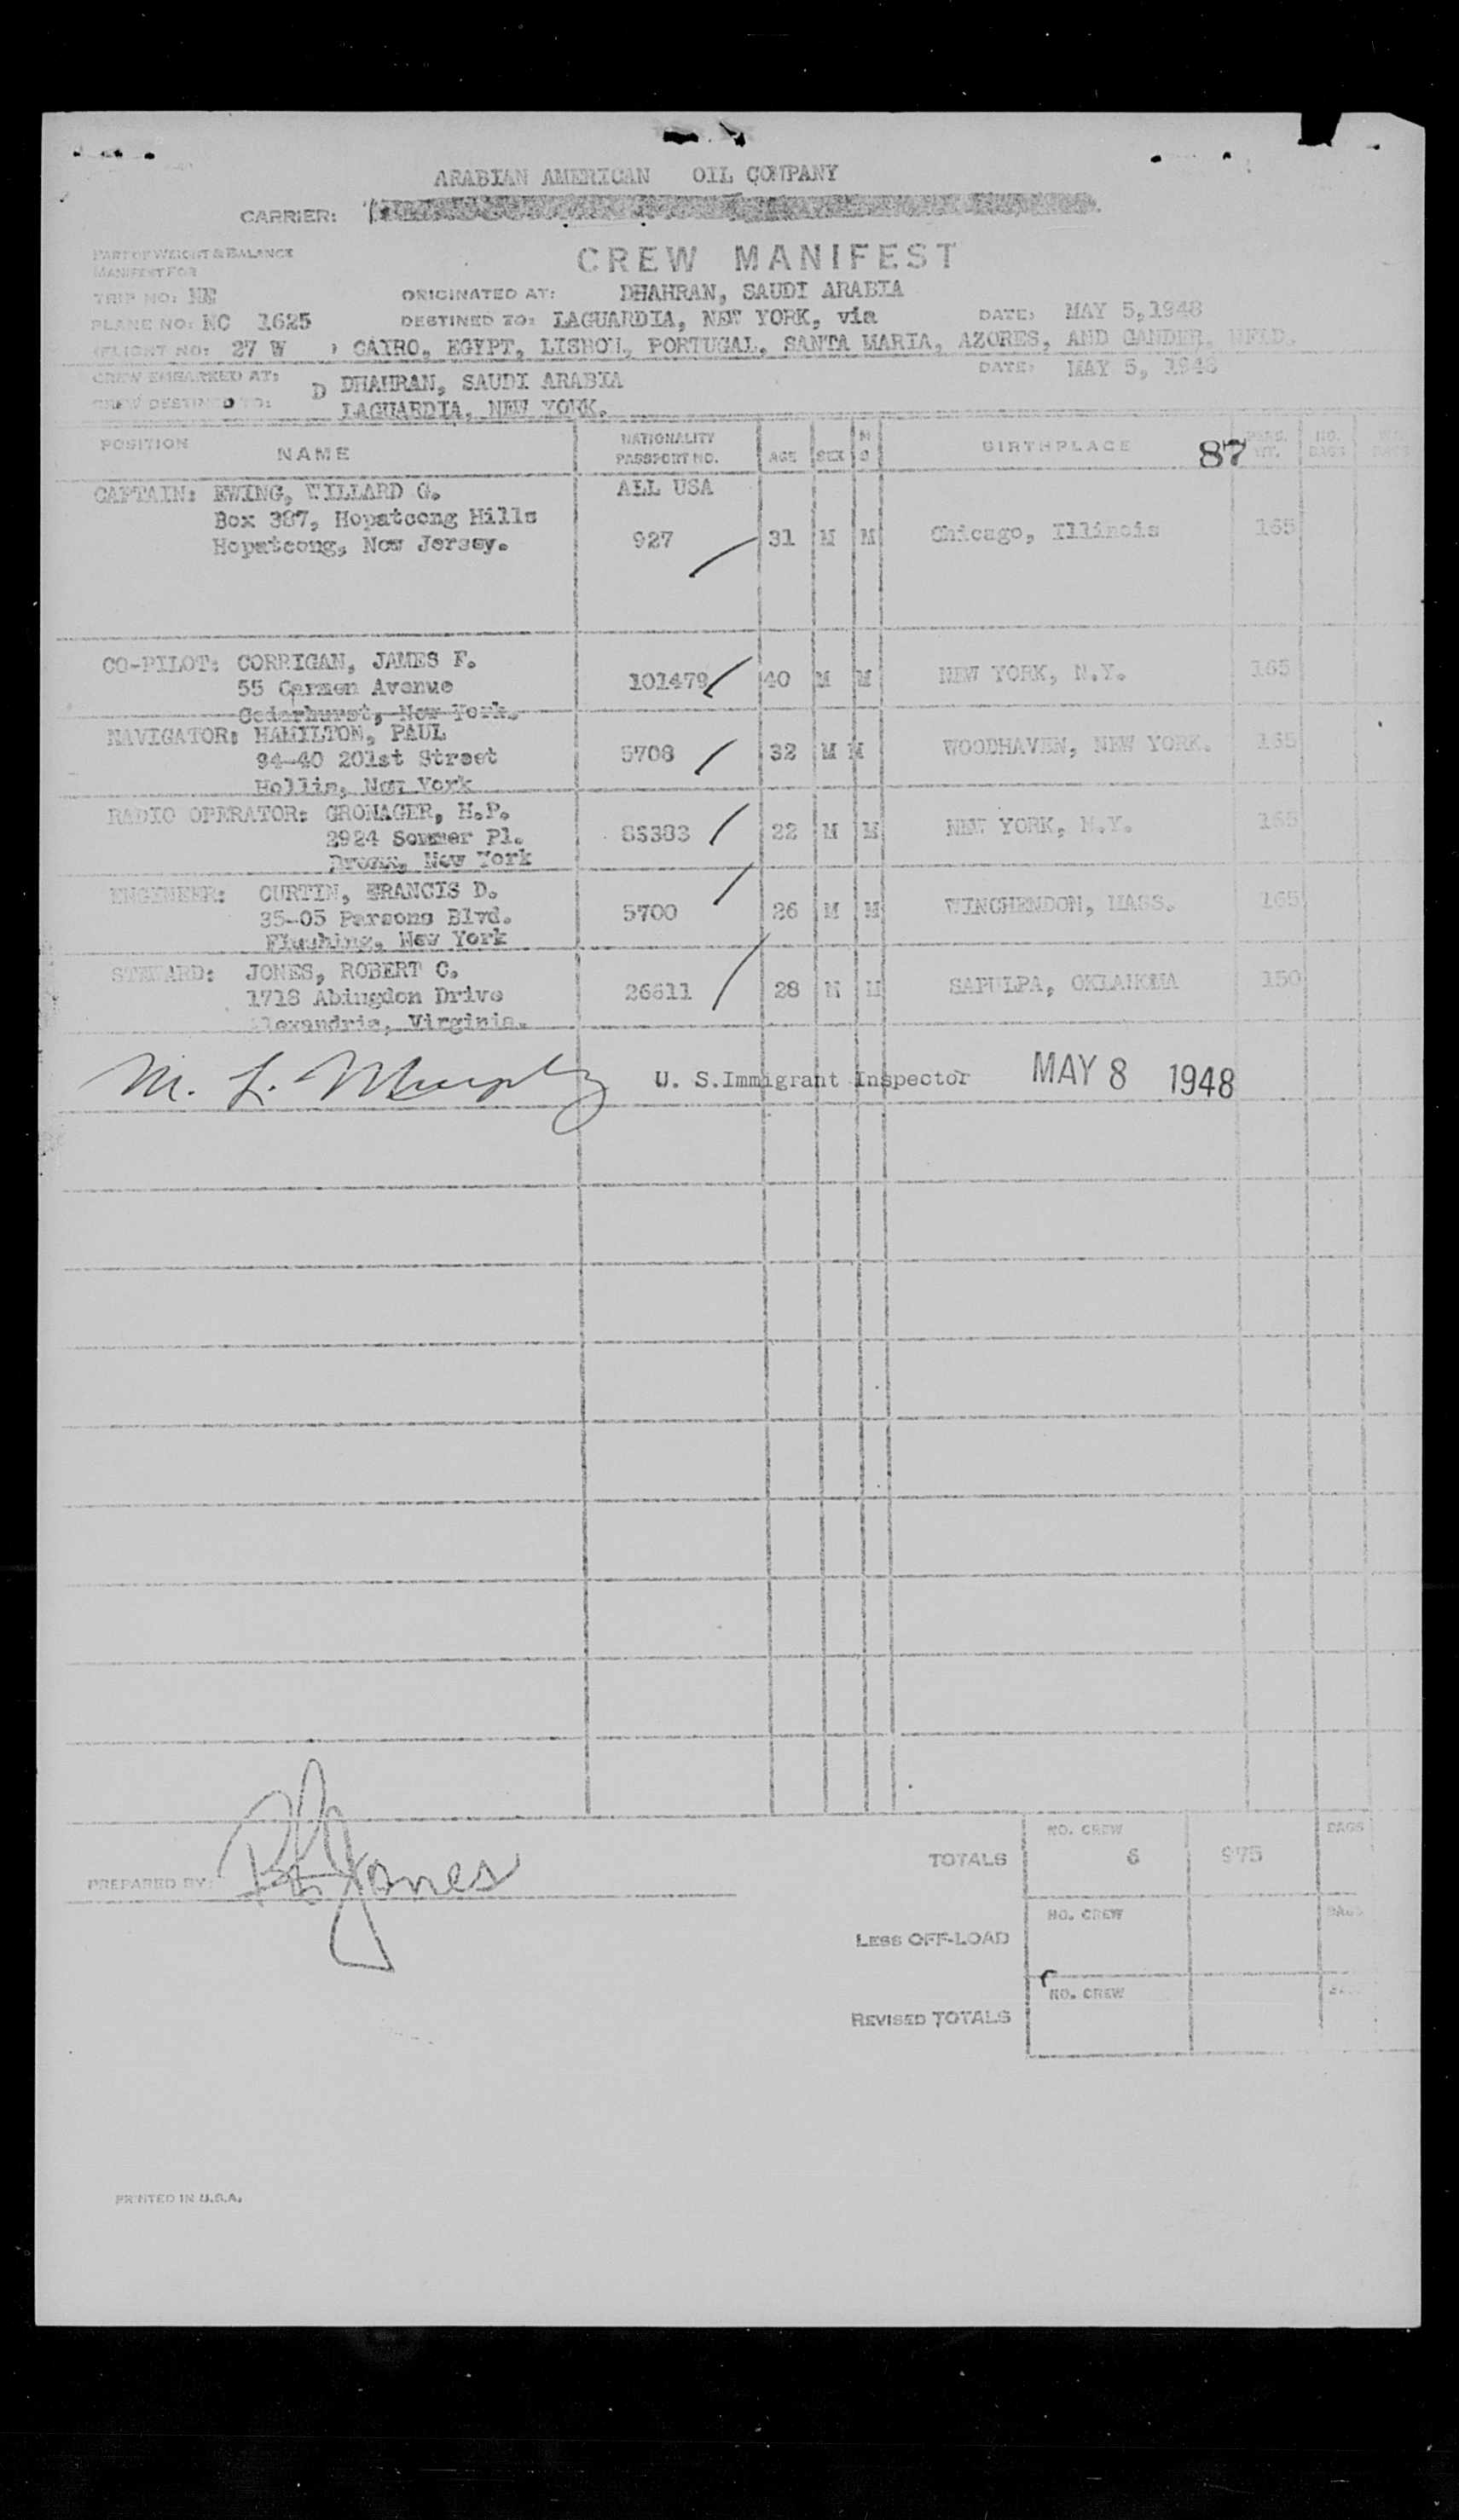 ARABIAN AMERICAN OIL COMPANY
CARRIER:
PART OF WEIGHT & BALANCE
MANIFEST FOR
CREW MANIFEST
TRIP NO: ORIGINATED AT: DHAHRAN, SAUDI ARABIA
PLANE NO: NC 1625 DESTINED TO: LAGUARDIA, NEW YORK, via DATE: MAY 5,1948
(FLIGHT NO: 27 W ) CAIRO, EGYPT, LISBON, PORTUGAL, SANTA MARIA, AZORES, AND GANDER, NFLD.
CREW EMBARKED AT: D DHAHRAN, SAUDI ARABIA DATE: MAY 5, 1948
CREW DESTINED TO: LAGUARDIA, NEW YORK.
POSITION NAME NATIONALITY PASSPORT NO. AGE SEX M S BIRTHPLACE 87 PERS. WT. NO. BAGS
CAPTAIN: EWING, WILLARD G. ALL USA
Box 387, Hopatcong Hills
Hopatcong, New Jersey. 927 31 M M Chicago, Illinois 165
CO-PILOT: CORRIGAN, JAMES F.
55 Carmen Avenue 101479 40 M M NEW YORK, N.Y. 165
Cedarhurst, New York.
NAVIGATOR: HAMILTON, PAUL
94-40 201st Street 5708 32 M M WOODHAVEN, NEW YORK. 165
Hollis, New York
RADIO OPERATOR: GRONAGER, H.P.
2924 Sommer Pl. 85383 22 M M NEW YORK, N.Y. 165
Bronx, New York
ENGINEER: CURTIN, FRANCIS D.
35-05 Parsons Blvd. 5700 26 M M WINCHENDON, MASS. 165
Flushing, New York
STEWARD: JONES, ROBERT C.
1718 Abingdon Drive 26611 28 M M SAPULPA, OKLAHOMA 150
Alexandria, Virginia.
M. L. Murphy U. S.Immigrant Inspector MAY 8 1948
TOTALS NO. CREW 6 975 BAGS
PREPARED BY: Jones
LESS OFF-LOAD NO. CREW BAGS
REVISED TOTALS NO. CREW
PRINTED IN U.S.A.